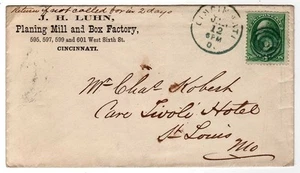 Return if not called for in 2 days
J. H. LUHN,
Planing Mill and Box Factory,
595, 597, 599 and 601 West Sixth St.
CINCINNATI.
12
6PM
O.
Mr Chas Kobert
Care Tivoli Hotel
St Louis
Mo